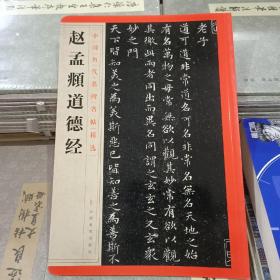 赵孟頫道德经
中国历代名碑名帖精选
老子
道可道非常道名可名非常名無名天地之始
有名萬物之母常無欲以觀其妙常有欲以觀
其徼此兩者同出而異名同謂之玄玄之又玄衆
妙之門
天下皆知美之為美斯惡已皆知善之為善斯不